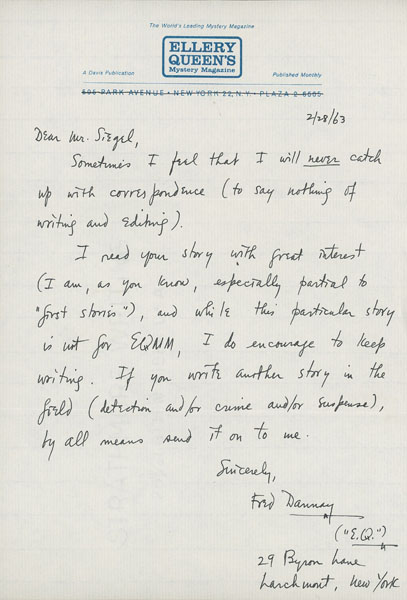 The World's Leading Mystery Magazine
ELLERY
QUEEN'S
Mystery Magazine
A Davis Publication
Published Monthly
505 PARK AVENUE • NEW YORK 22, N.Y. • PLAZA 2-6505
2/28/63
Dear Mr. Siegel,
Sometimes I feel that I will never catch
up with correspondence (to say nothing of
writing and editing).
I read your story with great interest
(I am, as you know, especially partial to
"first stories"), and while this particular story
is not for EQMM, I do encourage to keep
writing. If you write another story in the
field (detection and/or crime and/or suspense),
by all means send it on to me.
Sincerely,
Fred Dannay
("E.Q.")
29 Byron Lane
Larchmont, New York